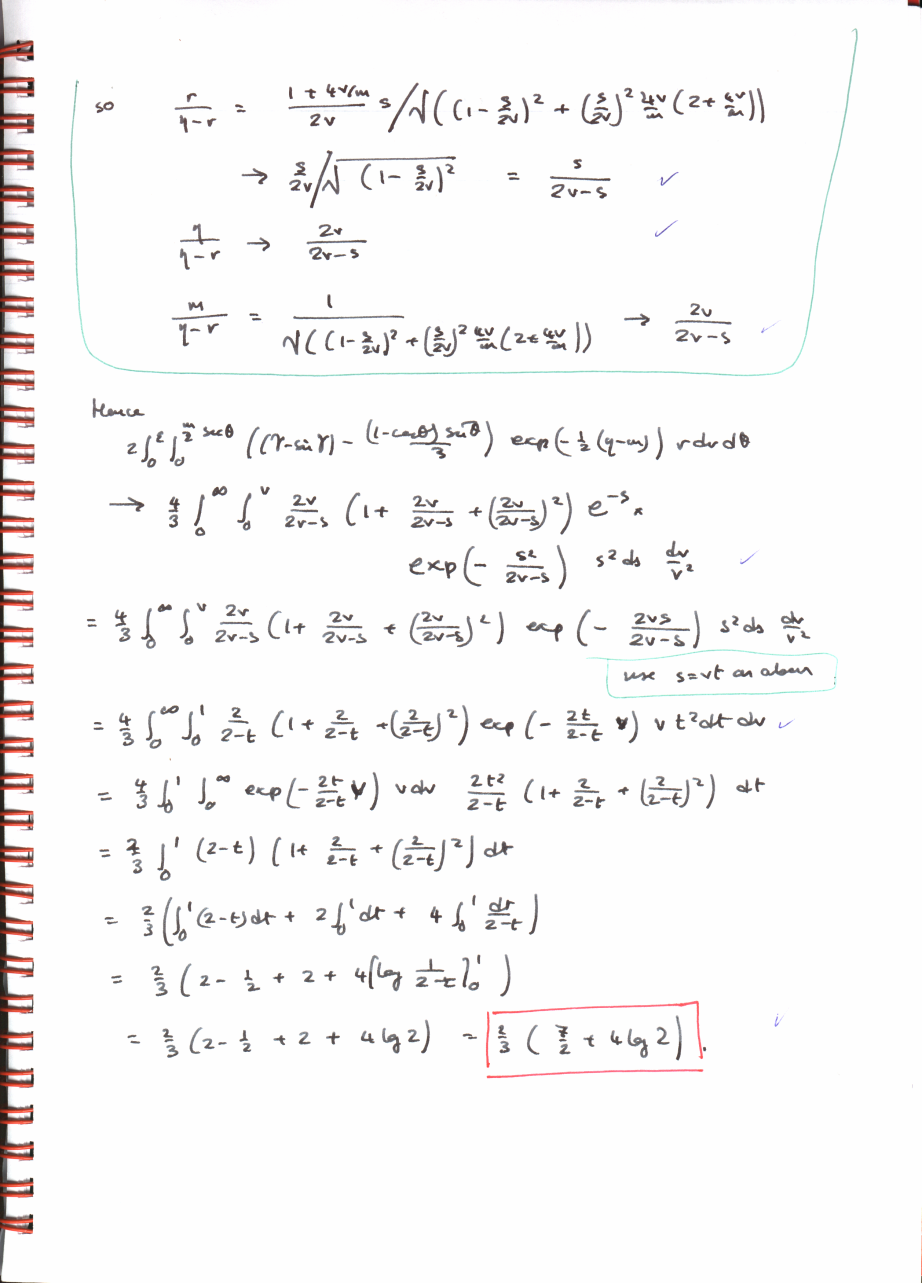 so r/(η-r) = (1 + 4v/m)/(2v) s / √((1 - s/2v)² + (s/2v)² 4v/m (2 + 4v/m))
→ s/2v / √(1 - s/2v)² = s/(2v-s) ✓
η/(η-r) → 2v/(2v-s) ✓
m/(η-r) = 1/√((1 - s/2v)² + (s/2v)² 4v/m (2 + 4v/m)) → 2v/(2v-s) ✓
Hence
2∫₀^ε ∫₀^{m/2 secθ} ((γ - sin γ) - (1-cosθ) sinθ/3) exp(-½(η-m)) r dr dθ
→ 4/3 ∫₀^∞ ∫₀^v 2v/(2v-s) (1 + 2v/(2v-s) + (2v/(2v-s))²) e^{-s} ×
exp(- s²/(2v-s)) s² ds dv/v² ✓
= 4/3 ∫₀^∞ ∫₀^v 2v/(2v-s) (1 + 2v/(2v-s) + (2v/(2v-s))²) exp(- 2vs/(2v-s)) s² ds dv/v²
use s=vt as above
= 4/3 ∫₀^∞ ∫₀^1 2/(2-t) (1 + 2/(2-t) + (2/(2-t))²) exp(- 2t/(2-t) v) v t² dt dv ✓
= 4/3 ∫₀^1 ∫₀^∞ exp(- 2t/(2-t) v) v dv 2t²/(2-t) (1 + 2/(2-t) + (2/(2-t))²) dt
= 2/3 ∫₀^1 (2-t) (1 + 2/(2-t) + (2/(2-t))²) dt
= 2/3 (∫₀^1 (2-t) dt + 2∫₀^1 dt + 4 ∫₀^1 dt/(2-t))
= 2/3 (2 - ½ + 2 + 4[log 1/(2-t)]₀^1)
= 2/3 (2 - ½ + 2 + 4 log 2) = 2/3 (7/2 + 4 log 2). ✓